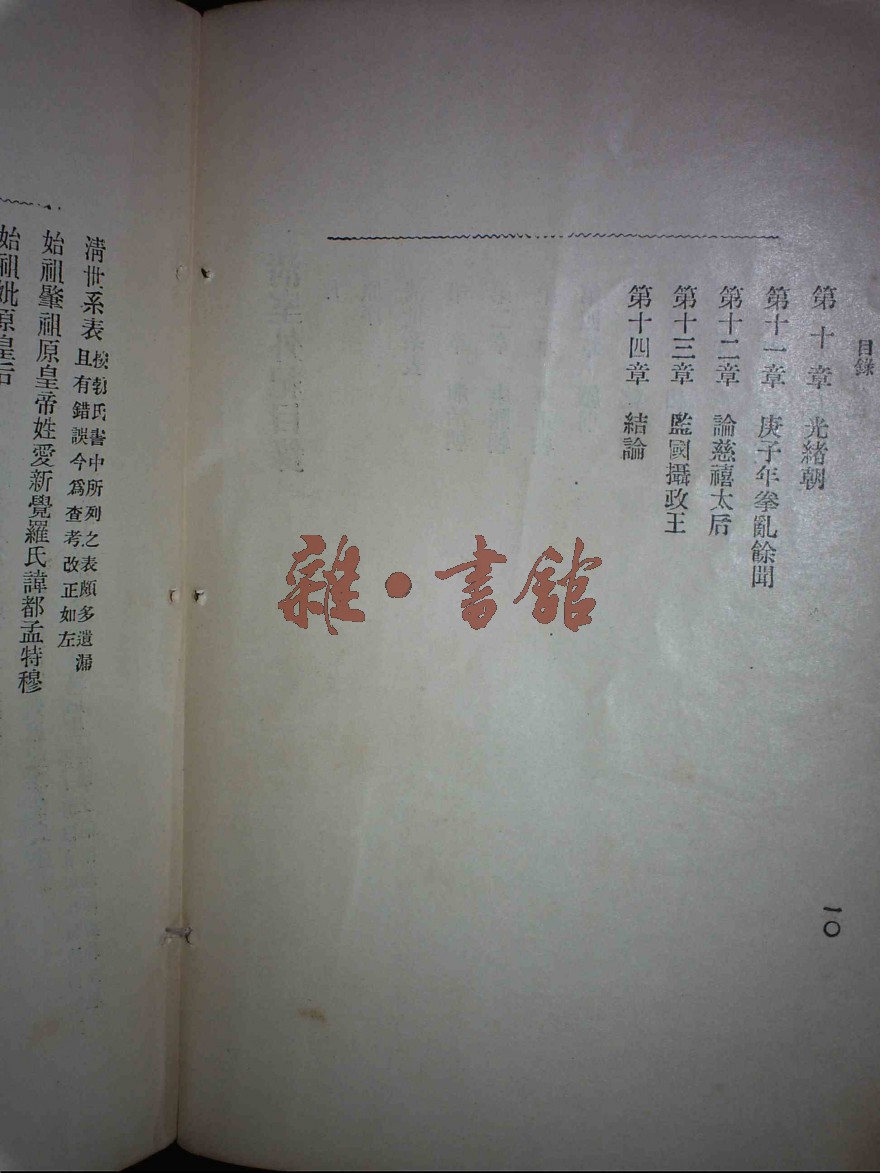 目錄
第十章 光緒朝
第十一章 庚子年拳亂餘聞
第十二章 論慈禧太后
第十三章 監國攝政王
第十四章 結論
一〇
雜·書館
清世系表
按勃氏書中所列之表頗多遺漏
且有錯誤今爲查考改正如左
始祖肇祖原皇帝姓愛新覺羅氏諱都孟特穆
始祖妣原皇后